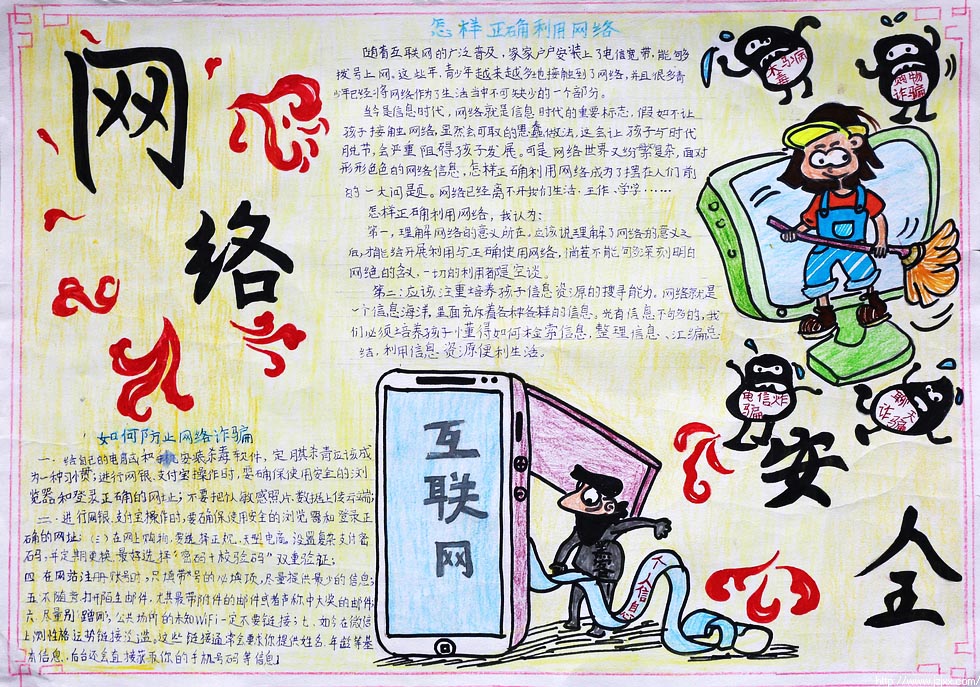 网
络
安
全
怎样正确利用网络
随着互联网的广泛普及，家家户户安装上了电信宽带，能够
拨号上网。这些年，青少年越来越多地接触到了网络，并且很多青
少年已经将网络作为了生活当中不可缺少的一个部分。
当今是信息时代，网络就是信息时代的重要标志，假如不让
孩子接触网络，虽然会可取的愚蠢做法，这会让孩子与时代
脱节，会严重阻碍孩子发展。可是网络世界又纷繁复杂，面对
形形色色的网络信息，怎样正确利用网络成为了摆在人们面前
的一大问题。网络已经离不开我们生活、工作、学学……
怎样正确利用网络，我认为：
第一，理解网络的意义所在。应该说理解了网络的意义之
后，才能给开展利用与正确使用网络，倘若不能够深刻明白
网络的含义，一切的利用都是空谈。
第二：应该注重培养孩子信息资源的搜寻能力。网络就是
一个信息海洋，里面充斥着各种各样的信息。光有信息不够的，我
们必须培养孩子懂得如何检索信息、整理信息、汇编总
结，利用信息资源便利生活。
木马病毒
购物诈骗
电信诈骗
聊天诈骗
互联网
毒
个人信息
如何防止网络诈骗
一、给自己的电脑和手机安装杀毒软件，定期杀毒应该成
为一种习惯；进行网银、支付宝操作时，要确保使用安全的浏
览器和登录正确的网址；不要把认敏感照片、数据上传云端；
二、进行网银、支付宝操作时，要确保使用安全的浏览器和登录正
确的网址；(三)在网上购物，要选择正规、大型电商，设置复杂支付密
码，并定期更换，最好选择“密码+校验码”双重验证；
四、在网站注册账号时，只填带*号的必填项，尽量提供最少的信息；
五、不随意打开陌生邮件，尤其是带附件的邮件或者声称中大奖的邮件；
六、尽量别“蹭网”，公共场所的未知WiFi一定不要链接；七、如今在微信
上测性格运势链接泛滥。这些链接通常会要求你提供姓名、年龄等基
本信息，后台还会直接获取你的手机号码等信息